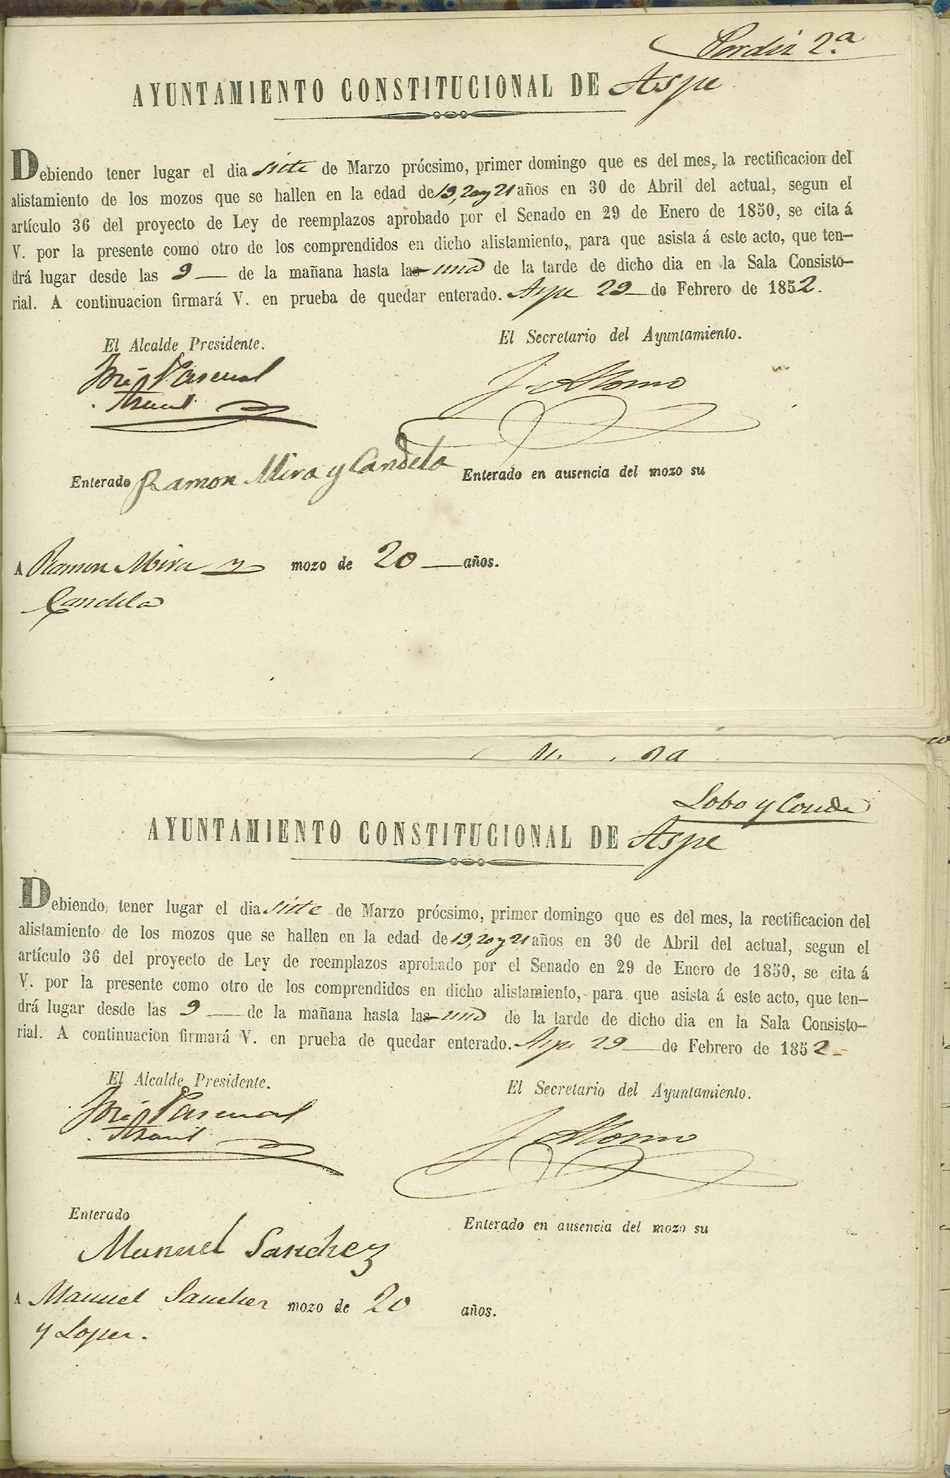 Cordér 2.ª
AYUNTAMIENTO CONSTITUCIONAL DE Aspe
Debiendo tener lugar el dia siete de Marzo prócsimo, primer domingo que es del mes, la rectificacion del
alistamiento de los mozos que se hallen en la edad de 19, 20 y 21 años en 30 de Abril del actual, segun el
artículo 36 del proyecto de Ley de reemplazos aprobado por el Senado en 29 de Enero de 1850, se cita á
V. por la presente como otro de los comprendidos en dicho alistamiento, para que asista á este acto, que ten-
drá lugar desde las 9 — de la mañana hasta las una de la tarde de dicho dia en la Sala Consisto-
rial. A continuacion firmará V. en prueba de quedar enterado. Aspe 29 de Febrero de 1852.
El Alcalde Presidente.
El Secretario del Ayuntamiento.
José Pascual
J. Alonso
Enterado Ramon Mira y Candela
Enterado en ausencia del mozo su
A Ramon Mira y mozo de 20 años.
Candela
Lobo y Conde
AYUNTAMIENTO CONSTITUCIONAL DE Aspe
Debiendo tener lugar el dia siete de Marzo prócsimo, primer domingo que es del mes, la rectificacion del
alistamiento de los mozos que se hallen en la edad de 19, 20 y 21 años en 30 de Abril del actual, segun el
artículo 36 del proyecto de Ley de reemplazos aprobado por el Senado en 29 de Enero de 1850, se cita á
V. por la presente como otro de los comprendidos en dicho alistamiento, para que asista á este acto, que ten-
drá lugar desde las 9 — de la mañana hasta las una de la tarde de dicho dia en la Sala Consisto-
rial. A continuacion firmará V. en prueba de quedar enterado. Aspe 29 de Febrero de 1852
El Alcalde Presidente.
El Secretario del Ayuntamiento.
José Pascual
J. Alonso
Enterado
Enterado en ausencia del mozo su
Manuel Sanchez
A Manuel Sanchez mozo de 20 años.
y Lopez.